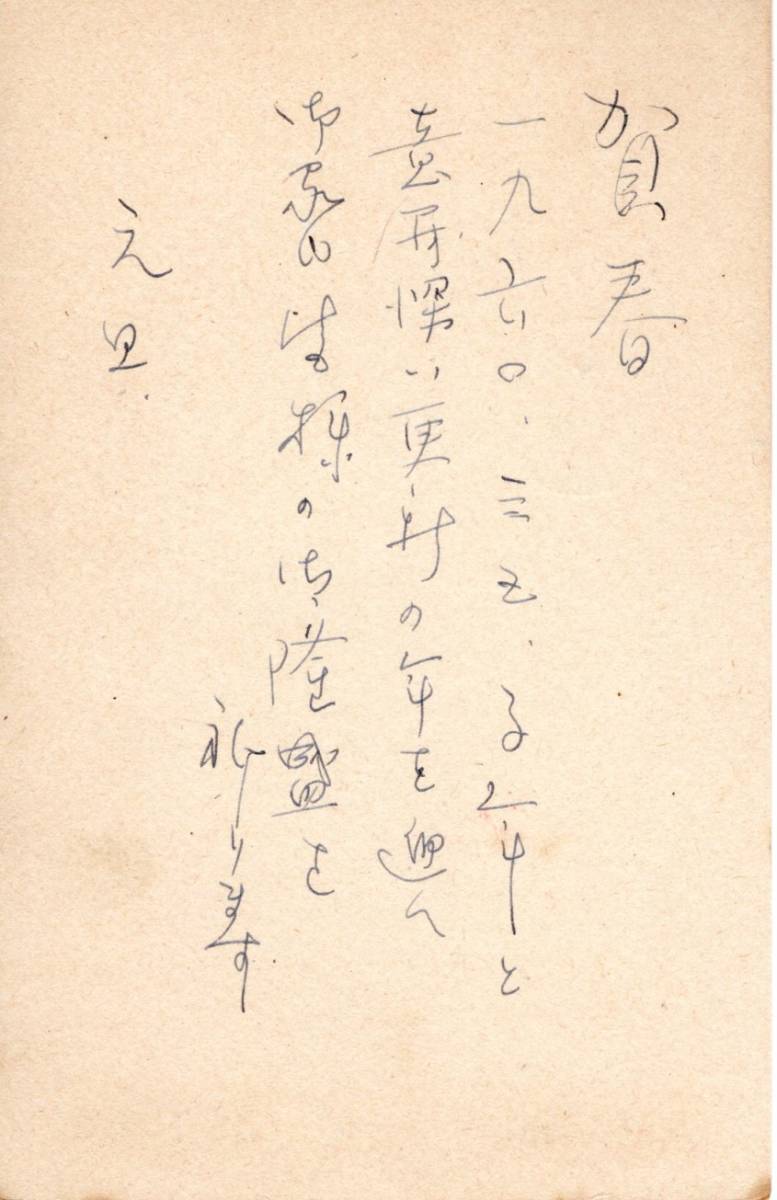 賀春
一九六〇、三五、子年と
意義深い更新の年を迎え
御家内皆様の御隆盛を
祈ります
元旦